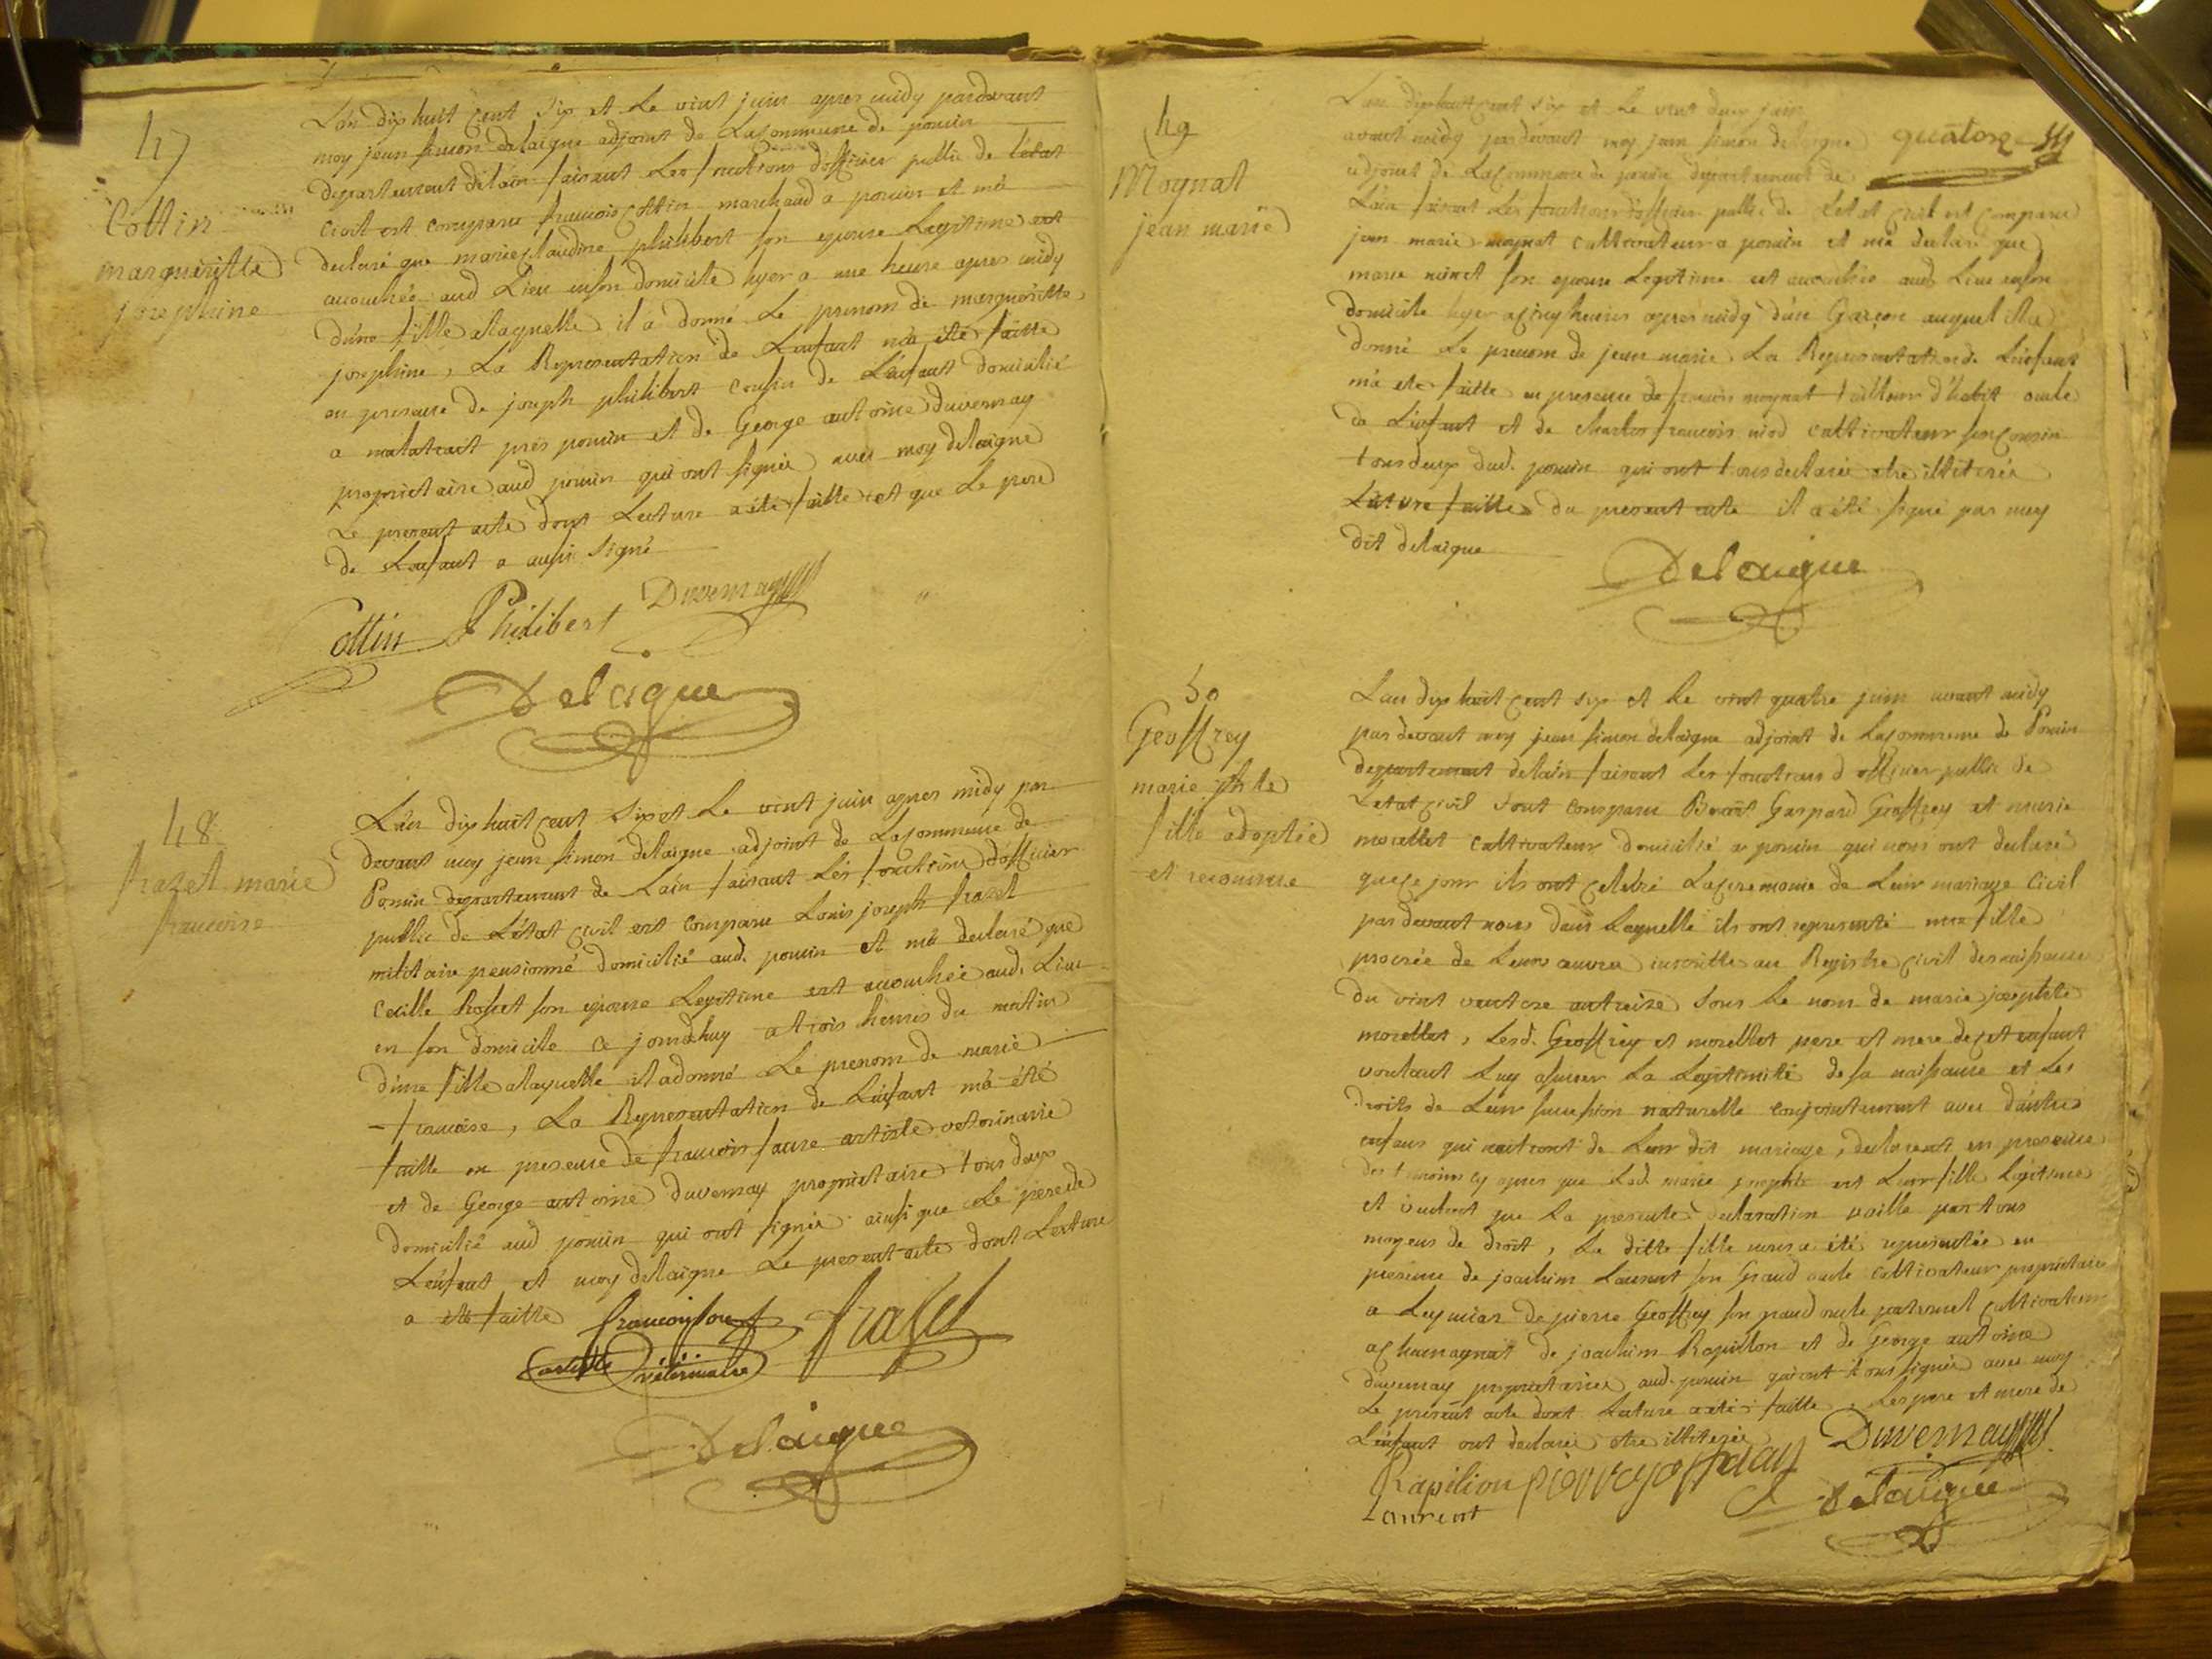 47
Cottin
marguéritte
josephine
L'an dix huit cent six et le vint juin apres midy pardevant
moy jean simon delaigue adjoint de la commune de poncin
departement de lain faisant les fonctions d'officier public de l'état
civil est comparu francois Cottin marchand a poncin et m'a
declaré que marie claudine philibert son epouse legitime est
accouchée aud lieu en son domicile hyer a une heure apres midy
d'une fille a laquelle il a donné le prenom de marguéritte
josephine, La Representation de L'enfant m'a été faitte
en presence de joseph philibert cousin de L'enfant domicilié
a malatrait près poncin et de George antoine duvernay
proprietaire aud poncin qui ont signé avec moy delaigue
Le present acte dont Lecture a été faitte et que Le pere
de L'enfant a aussi signé
Cottin Philibert Duvernay
Delaigue
48
frazet marie
francoise
L'an dix huit cent six et le vint juin apres midy par
devant moy jean simon delaigue adjoint de La commune de
Poncin departement de L'ain faisant les fonctions d'officier
public de L'état civil est comparu Louis joseph frazet
militaire pensionné domicilié aud. poncin et m'a declaré que
Cecille son epouse Legitime est accouchée aud. Lieu
en son domicile ce jourdhuy a trois heures du matin
d'une fille a laquelle il a donné Le prenom de marie
francoise, La Representation de L'enfant m'a été
faitte en presence de francois faure artiste veterinaire
et de George antoine duvernay proprietaire tous deux
domicilié aud poncin qui ont signé ainsi que Le pere de
L'enfant et moy delaigue Le present acte dont Lecture
a été faitte
francois faure frazet
artiste véterinaire
Delaigue
49
Moynat
jean marie
quatorze
L'an dix huit cent six et le vint deux juin
avant midy pardevant moy jean simon delaigue
adjoint de La commune de poncin departement de
L'ain faisant les fonctions d'officier public de L'etat civil est comparu
jean marie moynat cultivateur a poncin et m'a declaré que
marie son epouse Legitime est accouchée aud Lieu en son
domicile hyer a cinq heures apres midy d'un Garçon auquel il a
donné Le prenom de jean marie La Representation de L'enfant
m'a été faitte en presence de francois moynat tailleur d'habit oncle
de L'enfant et de charles francois niod cultivateur son cousin
tous deux dud. poncin qui ont tous declaré etre illiterés
Lecture faitte du present acte il a été signé par moy
dit delaigue
Delaigue
50
Geoffrey
marie jphte
fille adoptée
et reconnue
L'an dix huit cent six et le vint quatre juin avant midy
pardevant moy jean simon delaigue adjoint de La commune de Poncin
departement de lain faisant les fonctions d officier public de
L'etat civil sont comparu Benoit Gaspard Geoffrey et marie
morellet cultivateur domicilié a poncin qui nous ont declaré
que ce jour ils ont celebré La ceremonie de Leur mariage civil
pardevant nous dans Laquelle ils ont representé une fille
procrée de Leurs œuvres inscritte au Registre civil des naissances
du vint ventose an treize sous le nom de marie josephte
morellet, Lesd. Geoffrey et morellet pere et mere de cet enfant
voulant luy assurer La Legitimité de sa naissance et Les
droits de Leur succession naturelle conjointement avec d'autres
enfans qui naitront de Leur dit mariage, declarent en presence
des temoins cy apres que Lad. marie josephte est Leur fille Legitime
et veulent que La presente declaration vaille par tous
moyens de droit, La ditte fille nous a été representée en
presence de joachim Laurent son Grand oncle cultivateur proprietaire
a Leymiat de pierre Geoffrey son grand oncle paternel cultivateur
a champagnat de joachim Rapillon et de George antoine
duvernay proprietaires aud. poncin qui ont tous signé avec moy
Le present acte dont Lecture a été faitte. Les pere et mere de
L'enfant ont declaré etre illiterés
Duvernay
Rapilion pierre
Laurent
Delaigue